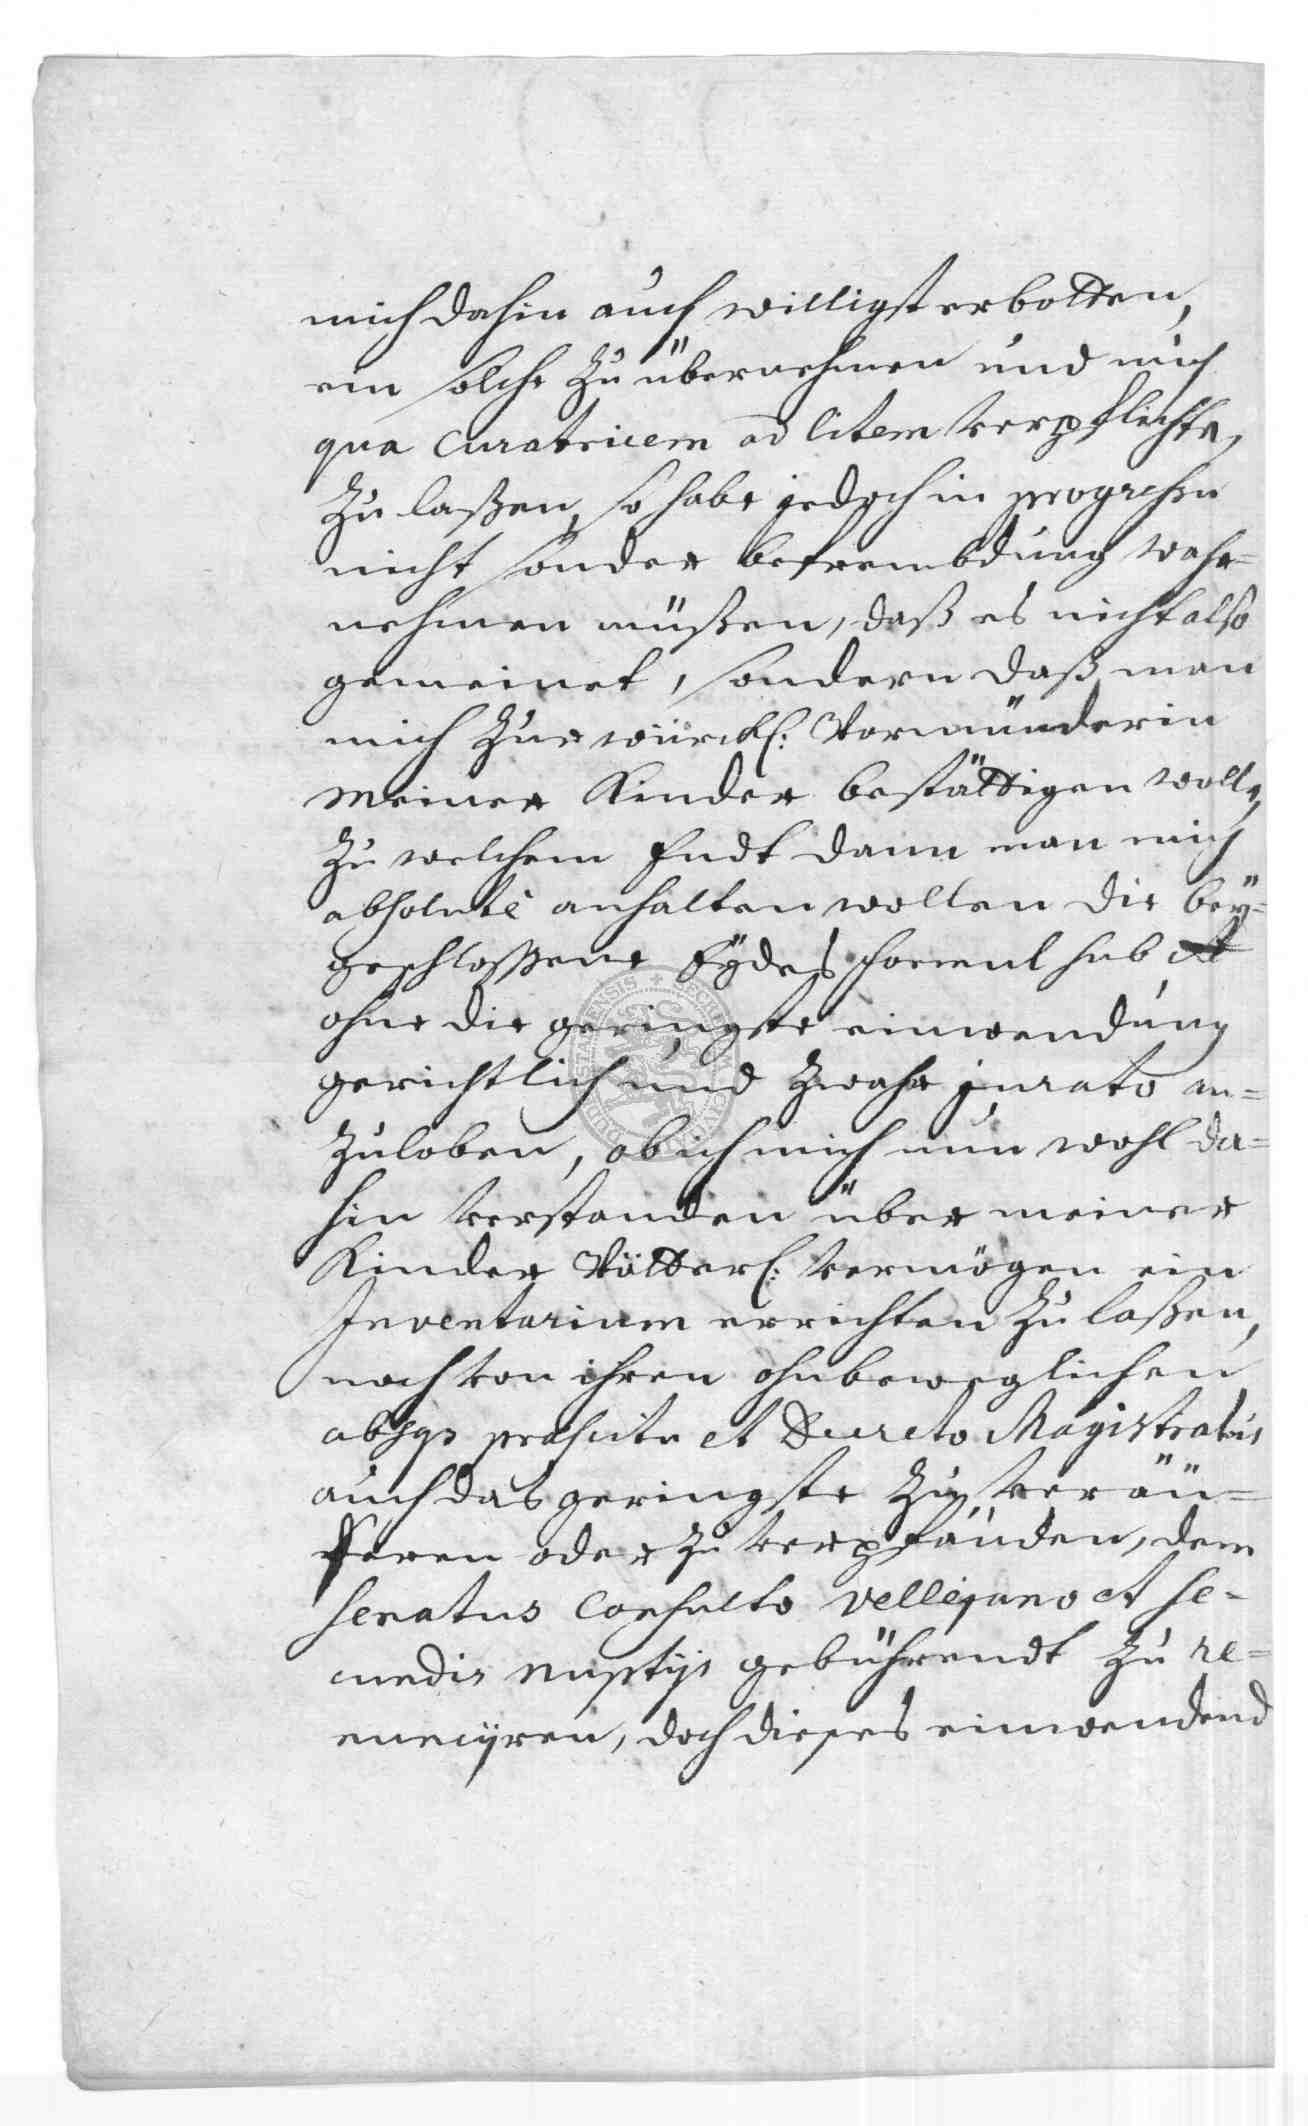 mich dahin auch willigst erbotten,
ein solche zu übernehmen und mich
qua Curatricem ad litem verpflichten
zu laßen, so habe jedoch in progressu
nicht sonder befrembdung wahr=
nehmen müßen, daß es nicht also
gemeinet, sondern daß man
mich zur würckl: Vormünderin
meiner Kinder bestättigen wolle,
zu welchem Endt dann man mich
absolutè anhalten wollen die bey=
geschloßene Eydes formul sub A
ohne die geringste einwendung
gerichtlich und zwahr jurato an=
zuloben, ob ich mich nun wohl da=
hin verstanden über meiner
Kinder Vätterl: vermögen ein
Inventarium errichten zu laßen,
noch von ihren ohnbeweglichen
absqs præscitu et Decreto Magistratus
auch das geringste zu veräu=
ßeren oder zu verpfänden, dem
Senatus Consulto Vellejano et se=
cundis nuptijs gebührendt zu re=
nuncijren, doch dieses einwendend